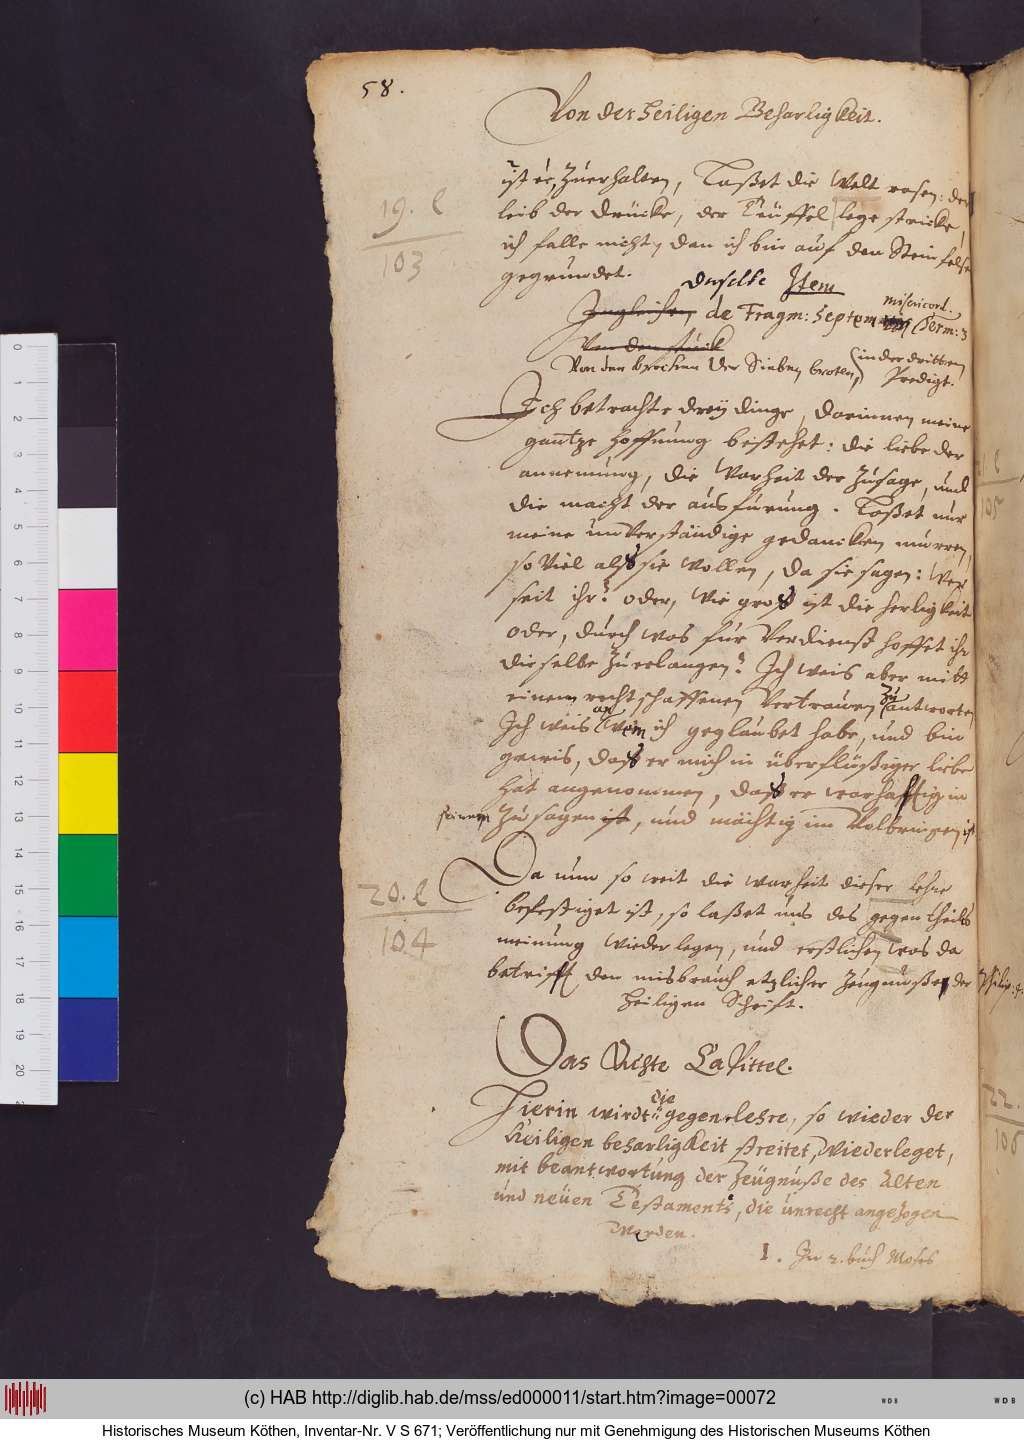 58.
Von der heiligen Beharligkeit.
ist er, zuerhalten, Laßet die Welt rasen: der
leib der drücke, der Teüffel lege stricke,
ich falle nicht, dan ich bin auf den Steinfelse
gegrundet.
19. l
103
Derselbe Item
Ingleichen, de Fragm: Septem misericord. Serm: 3
Von den stück
Von den brocken der Sieben broten, in der dritten
Predigt.
Ich betrachte dreÿ dinge, darinnen meine
gantze hoffnung bestehet: die liebe der
annemung, die Warheit der Zusage, und
die macht der ausfürung. Laßet nur
meine unVerständige gedancken murren,
so viel alß sie wollen, da sie sagen: Wer
seit ihr? oder, wie groß ist die herligkeit
oder, durch was für Verdienst hoffet ihr
dieselbe Zuerlangen? Ich weis aber mitt
einem rechtschaffenen Vertrauen zu antworten
Ich weis an Wem ich geglaubet habe, und bin
gewis, daß er mich in überflüßiger liebe
hat angenommen, daß er warhafftig in
seinem Zusagen ist, und mächtig im Volbringen ist
20. l
104
Da nun so weit die warheit dieser lehre
befestiget ist, so laßet uns des gegentheils
meinung wiederlegen, und erstlichen was da
betrifft den misbrauch etzlicher Zeugnußen der
heiligen Schrift.
Das Achte CaPittel.
Hierin wirdt die gegenlehre, so wieder der
heiligen beharligkeit streitet, Wiederleget,
mit beantwortung der Zeügnuße des Alten
und neüen Testaments, die unrecht angezogen
werden.
1. Im 2. buch Moses
105
22.
106
(c) HAB http://diglib.hab.de/mss/ed000011/start.htm?image=00072
WDB
WDB
Historisches Museum Köthen, Inventar-Nr. V S 671; Veröffentlichung nur mit Genehmigung des Historischen Museums Köthen
0
1
2
3
4
5
6
7
8
9
10
11
12
13
14
15
16
17
18
19
20